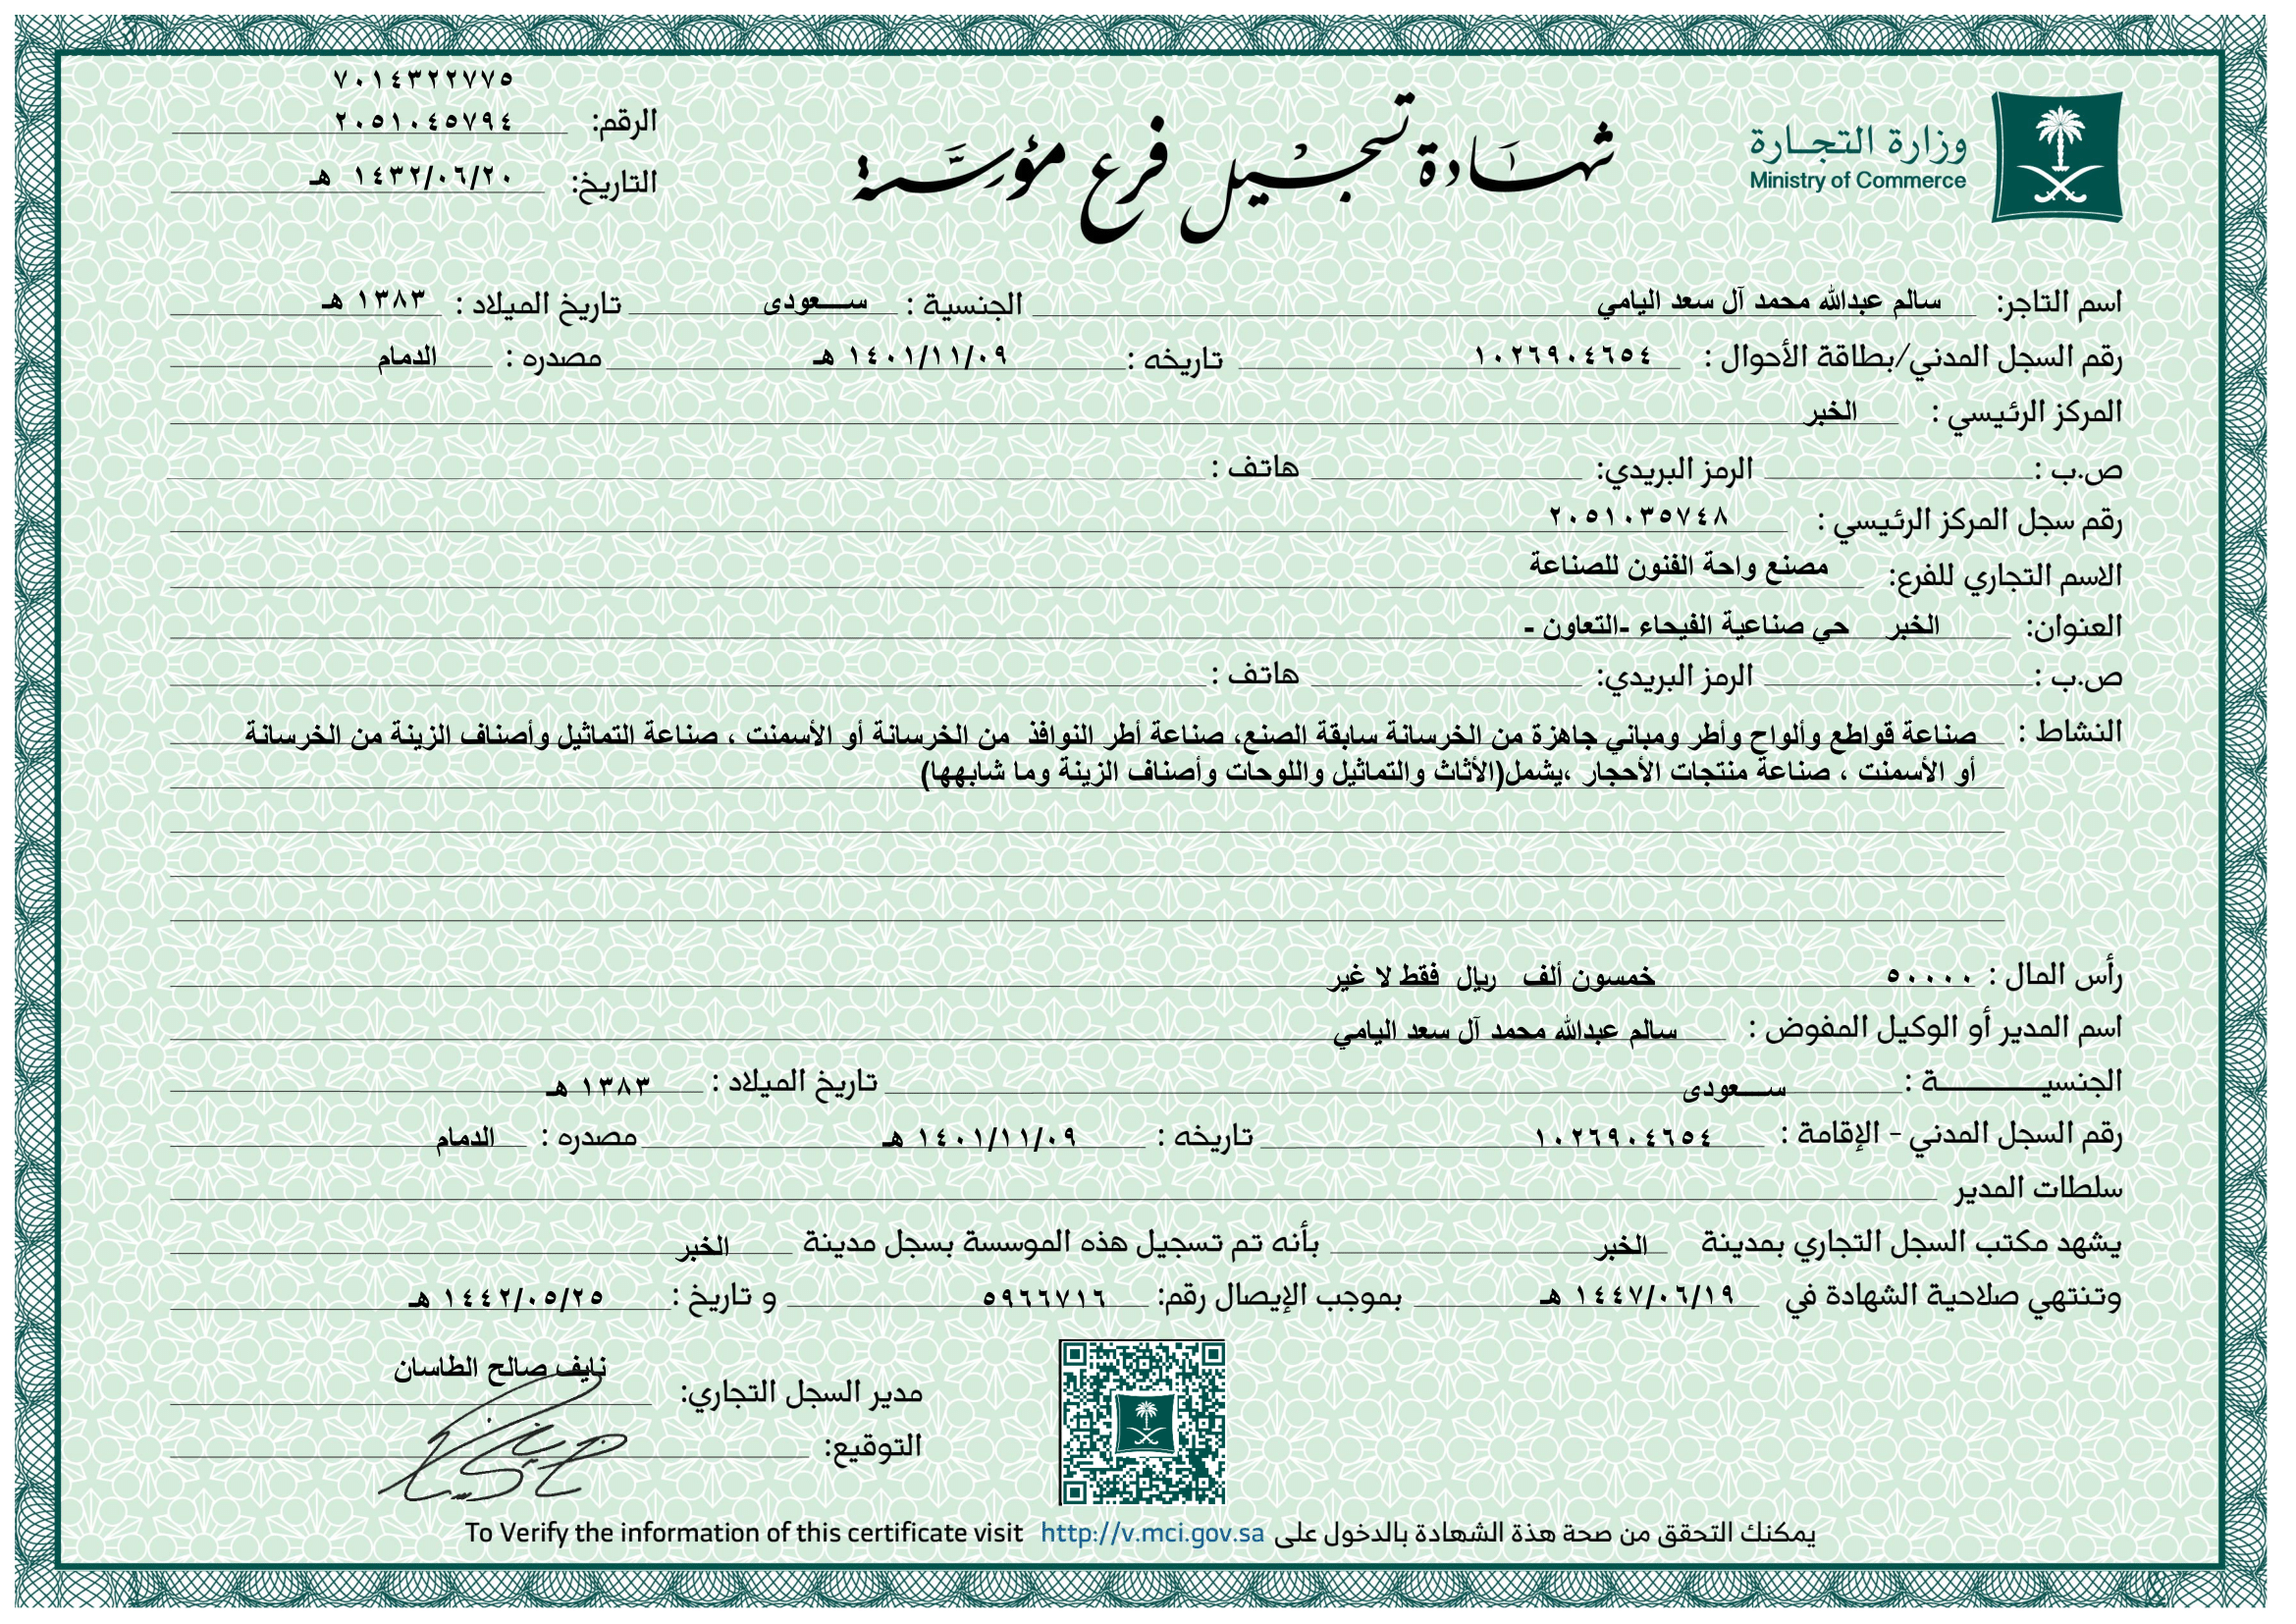 وزارة التجـارة
Ministry of Commerce
شهادة تسجيل فرع مؤسسة
٧٠١٤٣٢٢٧٧٥
الرقم: ٢٠٥١٠٤٥٧٩٤
التاريخ: ١٤٣٢/٠٦/٢٠ هـ
اسم التاجر: سالم عبدالله محمد آل سعد اليامي الجنسية : سـعودى تاريخ الميلاد : ١٣٨٣ هـ
رقم السجل المدني/بطاقة الأحوال : ١٠٢٦٩٠٤٦٥٤ تاريخه : ١٤٠١/١١/٠٩ هـ مصدره : الدمام
المركز الرئيسي : الخبر
ص.ب : الرمز البريدي: هاتف :
رقم سجل المركز الرئيسي : ٢٠٥١٠٣٥٧٤٨
الاسم التجاري للفرع: مصنع واحة الفنون للصناعة
العنوان: الخبر حي صناعية الفيحاء -التعاون -
ص.ب : الرمز البريدي: هاتف :
النشاط : صناعة قواطع وألواح وأطر ومباني جاهزة من الخرسانة سابقة الصنع، صناعة أطر النوافذ من الخرسانة أو الأسمنت ، صناعة التماثيل وأصناف الزينة من الخرسانة
أو الأسمنت ، صناعة منتجات الأحجار ،يشمل(الأثاث والتماثيل واللوحات وأصناف الزينة وما شابهها)
رأس المال : ٥٠٠٠٠ خمسون ألف ريال فقط لا غير
اسم المدير أو الوكيل المفوض : سالم عبدالله محمد آل سعد اليامي
الجنسيـــــــة : سـعودى تاريخ الميلاد : ١٣٨٣ هـ
رقم السجل المدني - الإقامة : ١٠٢٦٩٠٤٦٥٤ تاريخه : ١٤٠١/١١/٠٩ هـ مصدره : الدمام
سلطات المدير
يشهد مكتب السجل التجاري بمدينة الخبر بأنه تم تسجيل هذه الموسسة بسجل مدينة الخبر
وتنتهي صلاحية الشهادة في ١٤٤٧/٠٦/١٩ هـ بموجب الإيصال رقم: ٥٩٦٦٧١٦ و تاريخ : ١٤٤٢/٠٥/٢٥ هـ
مدير السجل التجاري: نايف صالح الطاسان
التوقيع:
يمكنك التحقق من صحة هذة الشهادة بالدخول على http://v.mci.gov.sa To Verify the information of this certificate visit